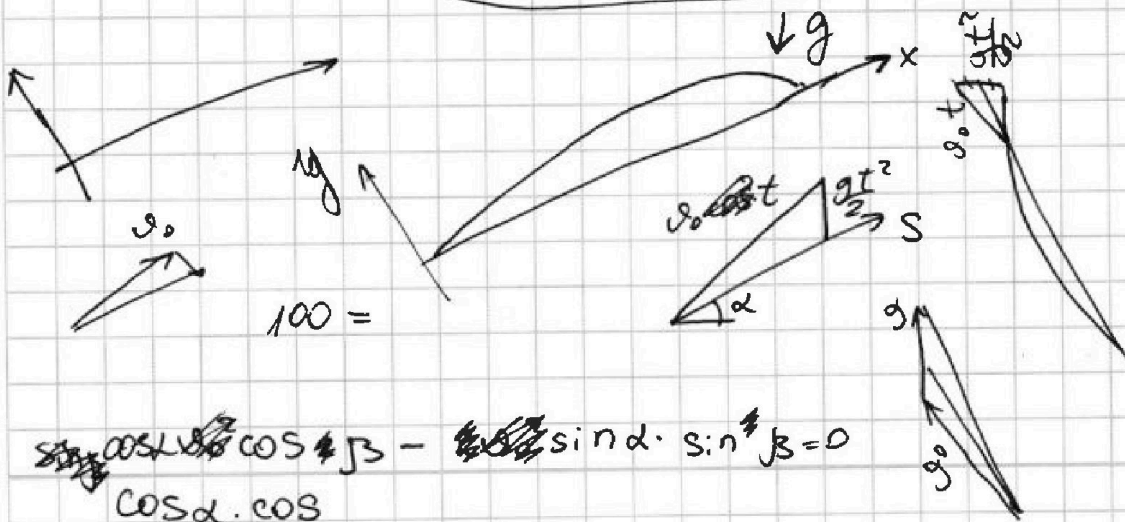 ↓ g
x
gt²/2
v₀ t
y
v₀
v₀ t
gt²/2
S
α
100 =
g
v₀
cosα cos β - sin α · sin β = 0
cosα · cos